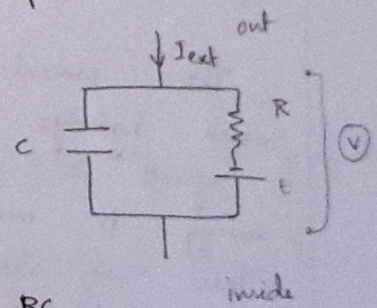 out
Iext
R
C
V
E
inside
RC